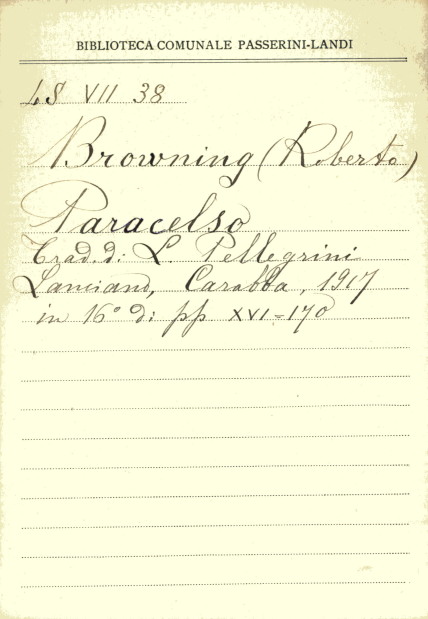 BIBLIOTECA COMUNALE PASSERINI-LANDI
LS VII 38
Browning (Roberto)
Paracelso
Trad. di L. Pellegrini
Lanciano, Carabba, 1917
in 16° di pp XVI-170